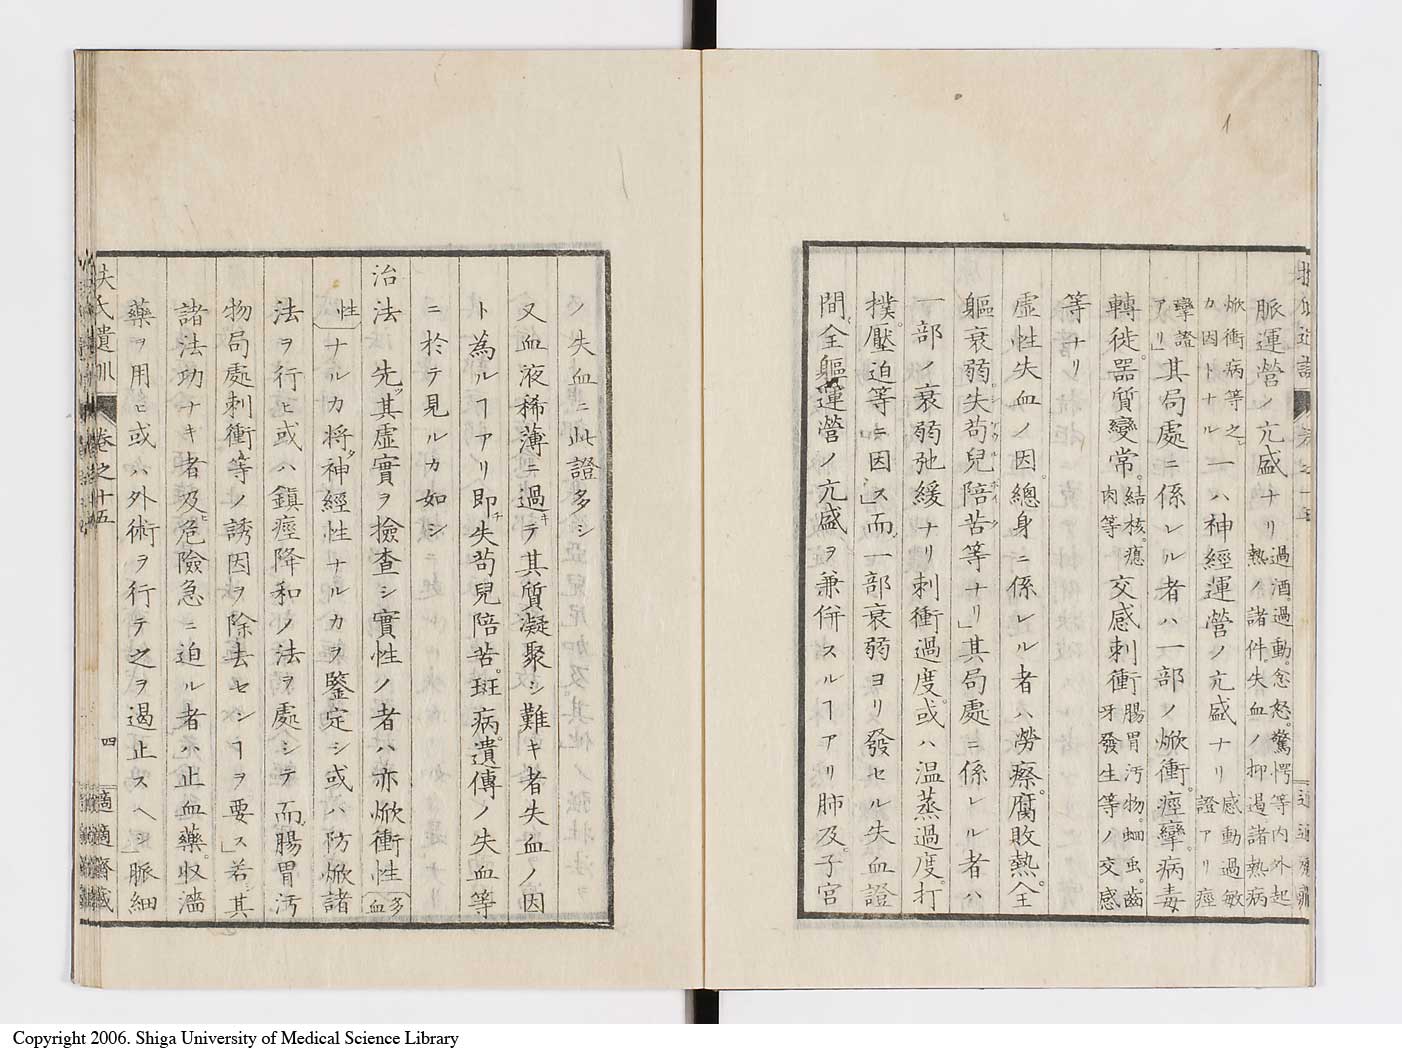 脈運營ノ亢盛ナリ過酒。過動。忿怒。驚愕等内外起
熱ノ諸件。失血ノ抑遏諸熱病
焮衝病等之
カ因トナル一ハ神經運營ノ亢盛ナリ感動過敏
證アリ痙
攣證
アリ」其局處ニ係レル者ハ一部ノ焮衝。痙攣。病毒
轉徙。器質變常。結核。瘜
肉等交感刺衝腸胃汚物。蛔虫。齒
牙發生等ノ交感
等ナリ
虚性失血ノ因。總身ニ係レル者ハ勞瘵。腐敗熱。全
軀衰弱。失苟兒陪苦等ナリ」其局處ニ係レル者ハ
一部ノ衰弱弛緩ナリ刺衝過度。或ハ温蒸過度。打
撲。壓迫等ニ因ス」而一部衰弱ヨリ發セル失血證
間。全軀運營ノ亢盛ヲ兼併スルヿアリ肺及。子宮
ノ失血ニ此證多シ
又血液稀薄ニ過キテ其質凝聚シ難キ者失血ノ因
ト為ルヿアリ即チ失苟兒陪苦。斑病。遺傳ノ失血等
ニ於テ見ルカ如シ
治法 先ツ其虚實ヲ撿査シ實性ノ者ハ亦焮衝性多
血
性ナルカ將タ神經性ナルカヲ鑒定シ或ハ防焮諸
法ヲ行ヒ或ハ鎭痙降和ノ法ヲ處シテ而腸胃汚
物局處刺衝等ノ誘因ヲ除去センヿヲ要ス」若其
諸法功ナキ者及ヒ危險急ニ迫ル者ハ止血藥。収濇
藥ヲ用ヒ或ハ外術ヲ行テ之ヲ遏止スヘシ」脈細
扶氏遺訓
卷之十五
四
適適齋藏
Copyright 2006. Shiga University of Medical Science Library